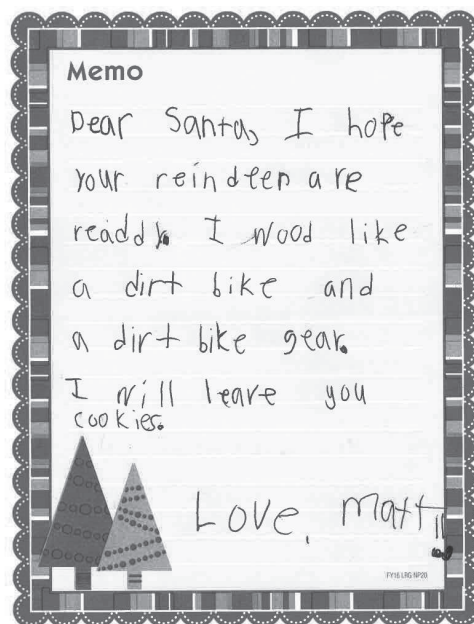 Memo
Dear Santa, I hope
your reindeer are
readdy. I wood like
a dirt bike and
a dirt bike gear.
I will leave you
cookies.
Love, Matt
FY16 LRG NP20